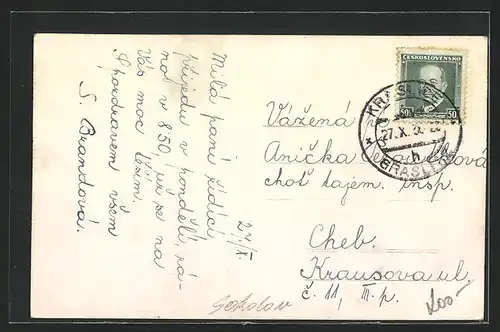 27./X.
Milá paní řídící,
přijedu v pondělí, rá-
no v 8 50, už se na
Vás moc těším.
S pozdravem všem
S. Brandová.
Vážená
Anička
choť tajem. insp.
Cheb.
Krausova ul.
č. 11, III. p.
Sokolov
ČESKOSLOVENSKO
50 50
KRASLICE
27.X.
GRASLITZ